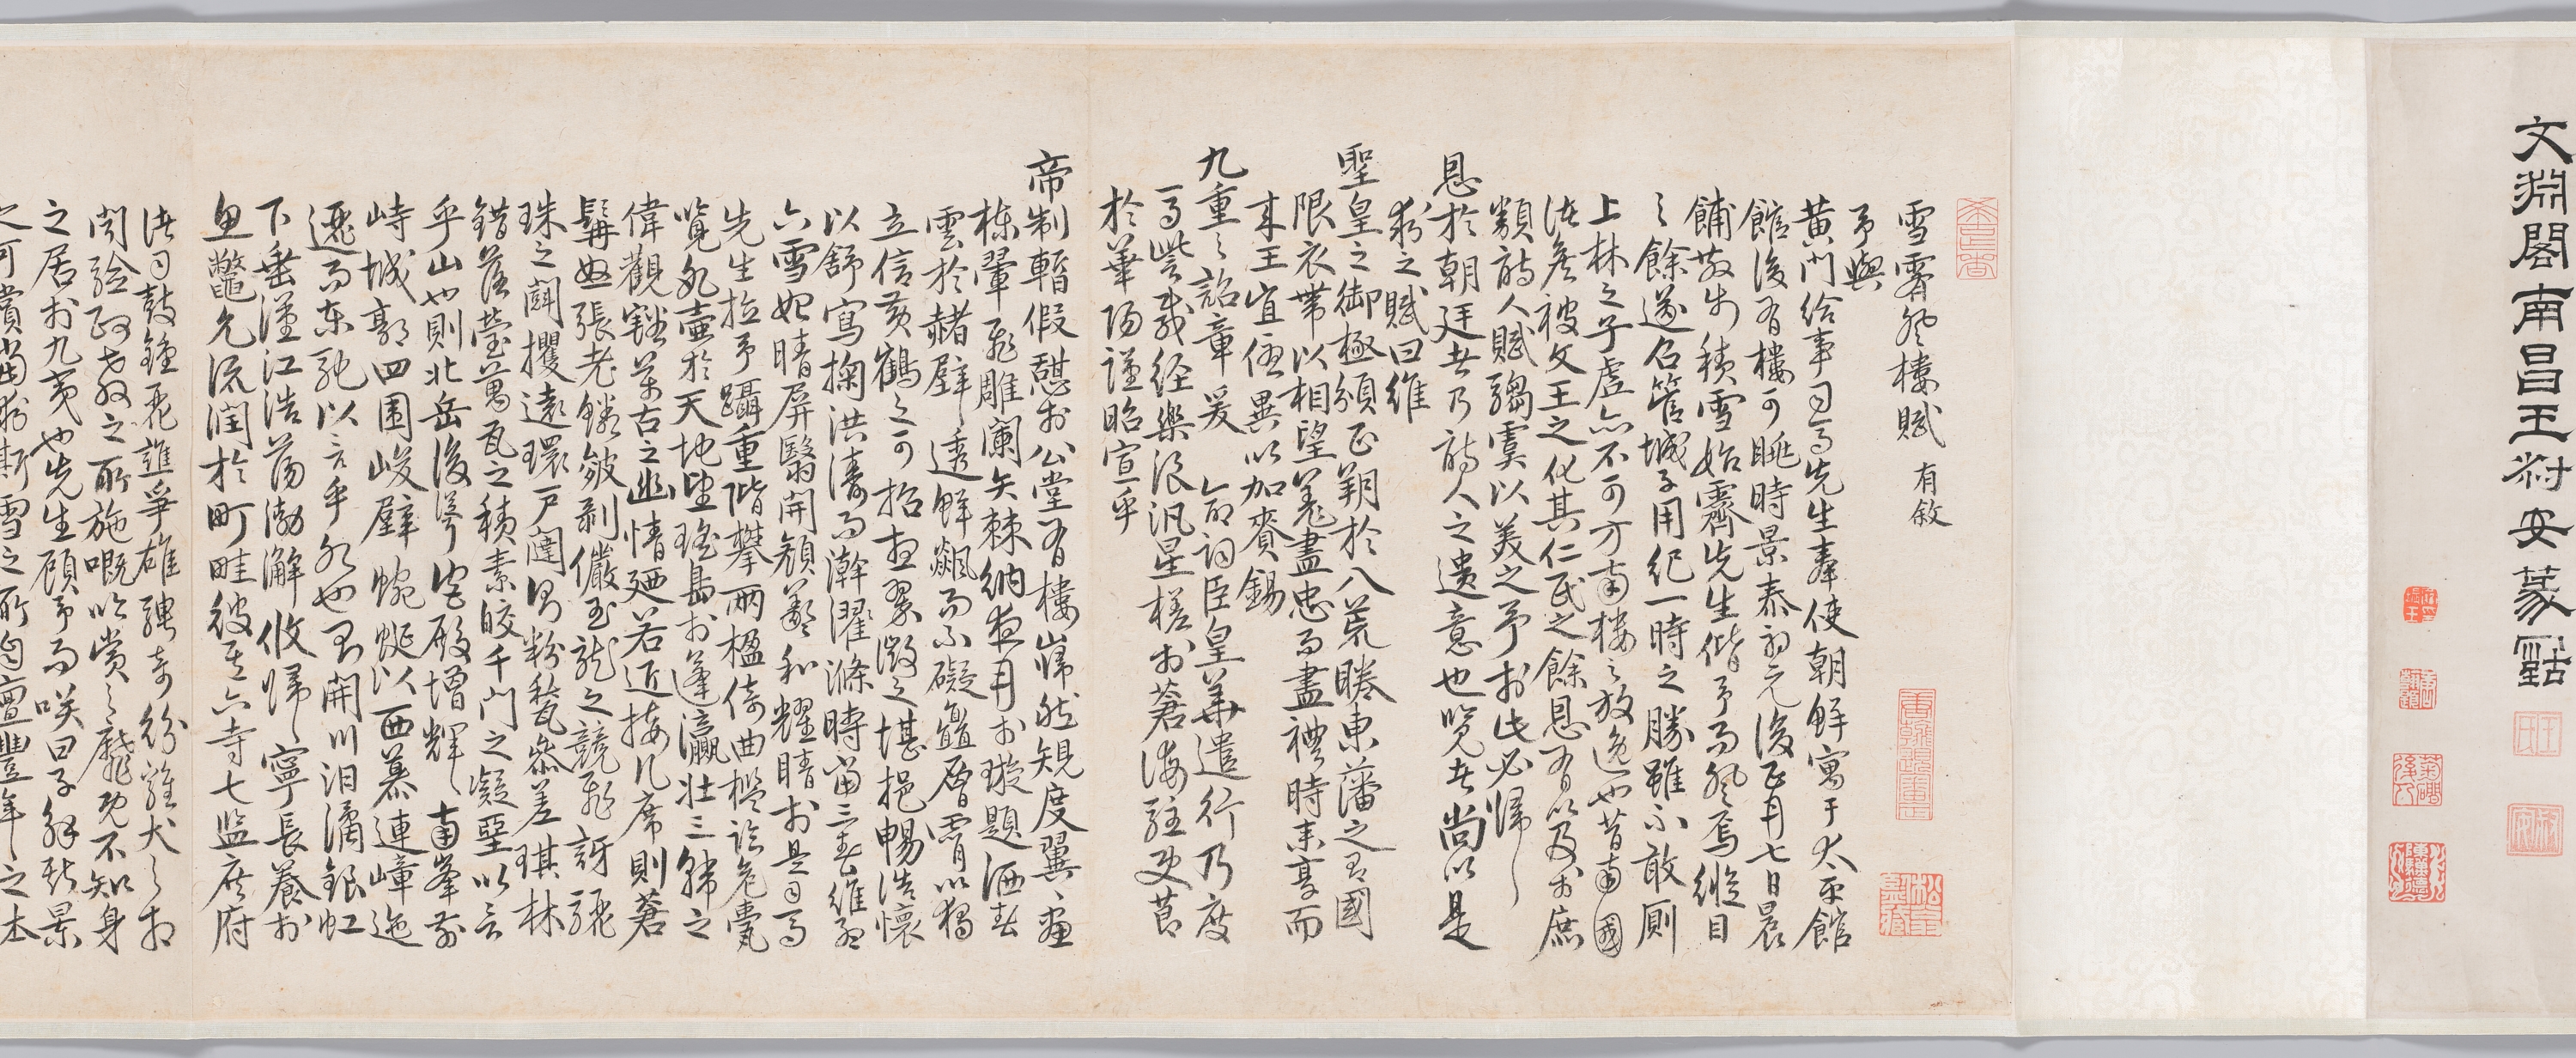 文淵閣南昌王尌安篆
雪霽登樓賦 有敘
予與
黃門給事司馬先生奉使朝鮮寓于太平館
館後有樓可眺時景泰初元後正月七日晨
餔散步積雪始霽先生偕予而登焉縱目
之餘遂召管城子用紀一時之勝雖不敢廁
上林之子虛亦不可方南樓之放逸也昔南國
諸侯被文王之化其仁民之餘恩有以及於庶
類詩人賦騶虞以美之予於此必歸
恩於朝廷者乃詩人之遺意也覽者尚以是
求之賦曰維
聖皇之御極頒正朔於八荒睠東藩之有國
限衣帶以相望羌盡忠而盡禮時來享而
來王宜優異以加賚錫
九重之詔章爰 命詞臣皇華遣行乃度
馬訾或經樂浪汎星槎於蒼海駐史節
於華陽謹昭宣乎
帝制暫假憩於公堂有樓巋然規度翼翼畫
棟翬飛雕闌矢棘納夜月於璇題洒春
雲於赭壁透鮮飆而不礙矗層霄以獨
立信黃鶴之可招想翠微之堪挹暢浩懷
以舒寫掬洪濤而澣濯滌時當三春維孟
六雪妃晴屏翳開顏羲和耀晴於是司馬
先生拉予躡重階攀兩楹倚曲檻訟危甍
覽氷壺於天地望瑤島於蓬瀛壯三韓之
偉觀豁萬古之幽情廼若近接几席則蒼
髯怒張老鱗皴剥儼玉龍之競飛訝驪
珠之鬬攫遠環戶闥則粉甃參差琪林
錯落瑩萬瓦之積素皎千門之凝堊以言
乎山也則北岳後聳宮殿增輝南峯前
峙城郭四圍峻壁蜿蜒以西慕連嶂迤
邐而東馳以言乎水也則開川汨潏銀虹
下垂漢江浩蕩渤澥攸歸寧長養於
魚鱉允流潤於町畦彼其六寺七監庶府
諸司鼓鍾虎誰爭雄騁奇紛雞犬之相
聞验政教之所施嘅吟賞之靡既不知身
之居於九夷也先生顧予而咲曰子維時景
之可賞當求斯雪之所自亶豐年之本